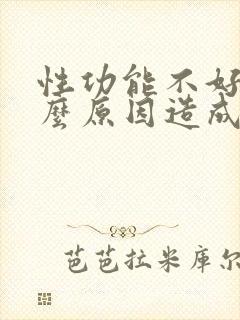 性功能不好
麼原因造成
芭芭拉米库尔